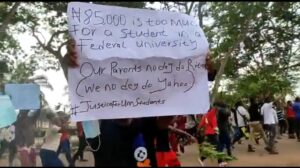 ₦85,000 is too much
For a student in a
Federal University
Our Parents no dey do Ritual
(we no dey do Yahoo)
#JusticeForUniStudents